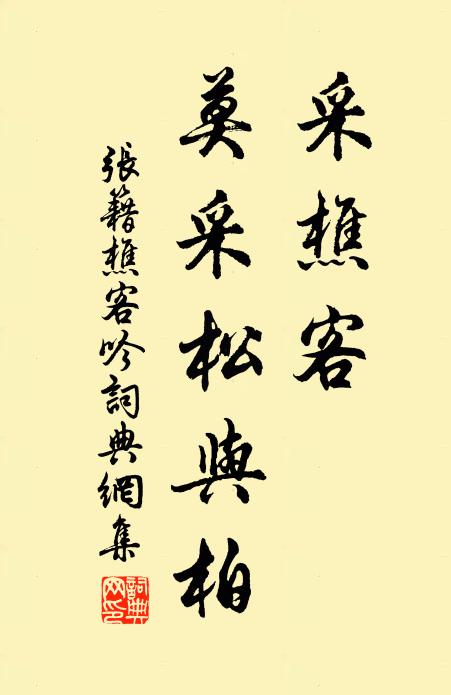 采樵客
莫采松與柏
張籍樵客吟詞典網集
詞典
网印